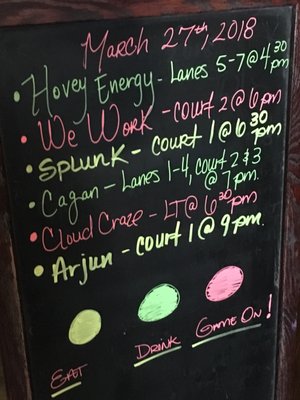 March 27th, 2018
• Hovey Energy - Lanes 5-7 @ 4:30 pm
• We Work - court 2 @ 6 pm
• Splunk - court 1 @ 6:30 pm
• Cagan - Lanes 1-4, court 2 & 3
@ 7 pm.
• Cloud Craze - LT @ 6:30 pm
• Arjun - court 1 @ 9 pm.
Eat Drink Game On!